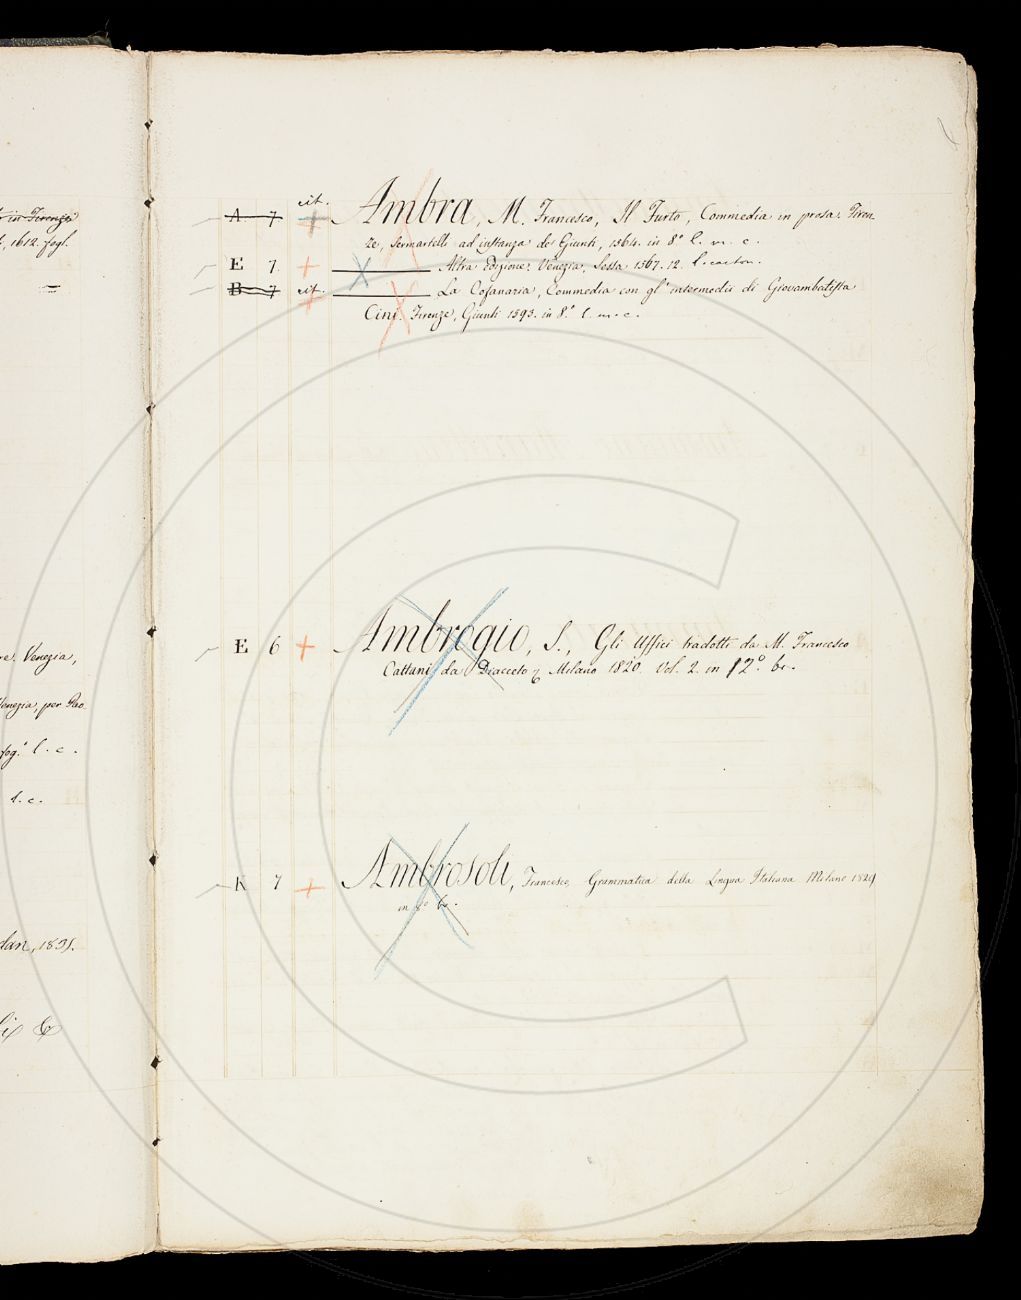 in Firenze
, 1612. fogl.
Venezia,
Venezia, per Pao
fog.° l. c.
l. c.
1831.
&
A 7 cit. Ambra, M. Francesco, Il Furto, Commedia in prosa. Firen
ze, Sermartelli ad instanza de' Giunti, 1564. in 8° l. m. c.
E 7. Altra edizione. Venezia, Sessa 1567. 12. l. carton.
B 7 cit. La Cofanaria, Commedia con gl' intermedii di Giovambatista
Cini. Firenze, Giunti 1593. in 8.° l. m. c.
E 6 Ambrogio, S., Gli Uffici tradotti da M. Francesco
Cattani da Diacceto Milano 1820. Vol. 2. in 12°. br.
K 7 Ambrosoli, Francesco, Grammatica della Lingua Italiana Milano 1829
in 8° br.